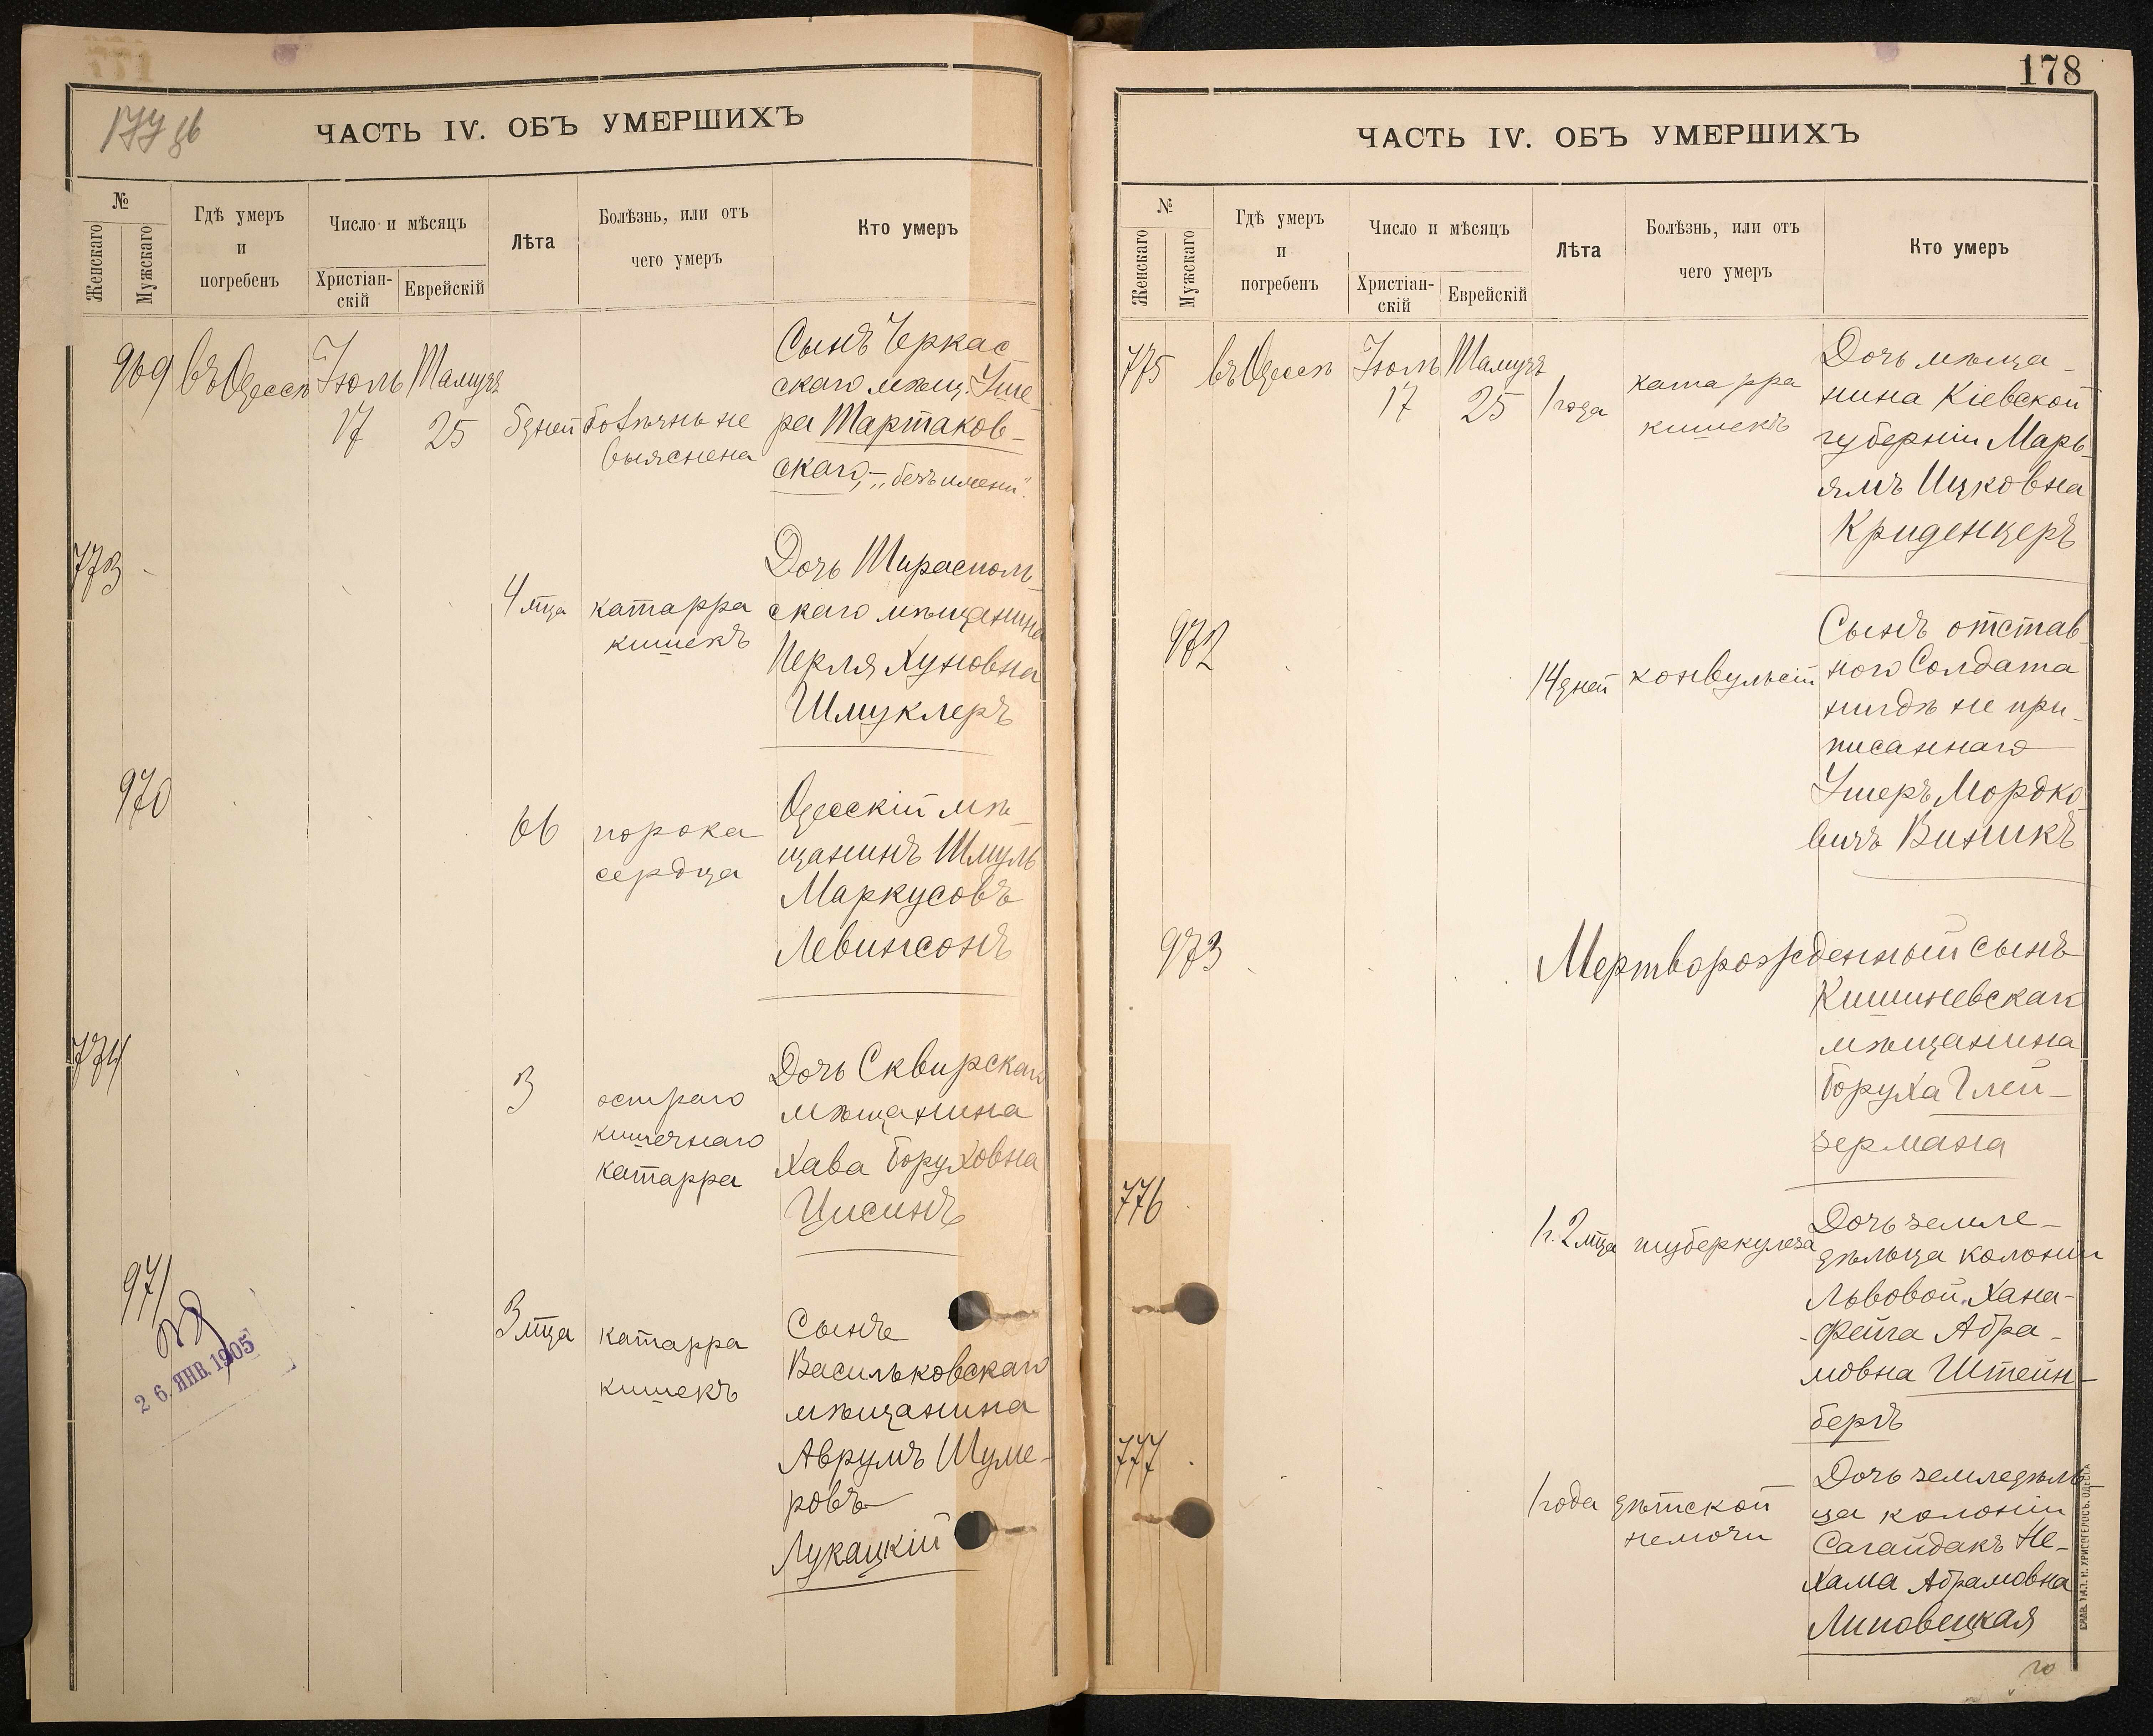 177 об
ЧАСТЬ IV. ОБЪ УМЕРШИХЪ
№
Женскаго
Мужскаго
Гдѣ умеръ
и
погребенъ
Число и мѣсяцъ
Христіан-
скій
Еврейскій
Лѣта
Болѣзнь, или отъ
чего умеръ
Кто умеръ
969 въ Одессѣ Іюль Тамузъ
17 25
6 дней болѣзнь не
выяснена
Сынъ Черкас-
скаго мѣщ. Уше-
ра Тартаков-
скаго, - „безъ имени".
773
4 мѣца катарра
кишекъ
Дочь Тирасполь-
скаго мѣщанина
Перля Хуновна
Шмуклеръ
970
66 порока
сердца
Одесскій мѣ-
щанинъ Шмуль
Маркусовъ
Левинсонъ
774
3 остраго
кишечнаго
катарра
Дочь Сквирскаго
мѣщанина
Хава Боруховна
Цисинъ
971
26. ЯНВ. 1905
3 мѣца катарра
кишекъ
Сынъ
Васильковскаго
мѣщанина
Аврумъ Шуме-
ровъ
Лукацкій
178
ЧАСТЬ IV. ОБЪ УМЕРШИХЪ
№
Женскаго
Мужскаго
Гдѣ умеръ
и
погребенъ
Число и мѣсяцъ
Христіан-
скій
Еврейскій
Лѣта
Болѣзнь, или отъ
чего умеръ
Кто умеръ
775 въ Одессѣ Іюль Тамузъ
17 25
1 года катарра
кишекъ
Дочь мѣща-
нина Кіевской
губерніи Марь-
ямъ Ицковна
Криденцеръ
972
14 дней конвульсій
Сынъ отстав-
ного Солдата
нигдѣ не при-
писаннаго
Ушеръ Мордко-
вичъ Виникъ
973
Мертворожденный сынъ
Кишиневскаго
мѣщанина
Боруха Глей-
зермана
776
1 г. 2 мѣца туберкулеза
Дочь земле-
дѣльца колоніи
Львовой Хана-
-Фейга Абра-
мовна Штейн-
бергъ
777
1 года дѣтской
немочи
Дочь земледѣль-
ца колоніи
Сагайдакъ Не-
хама Абрамовна
Липовецкая